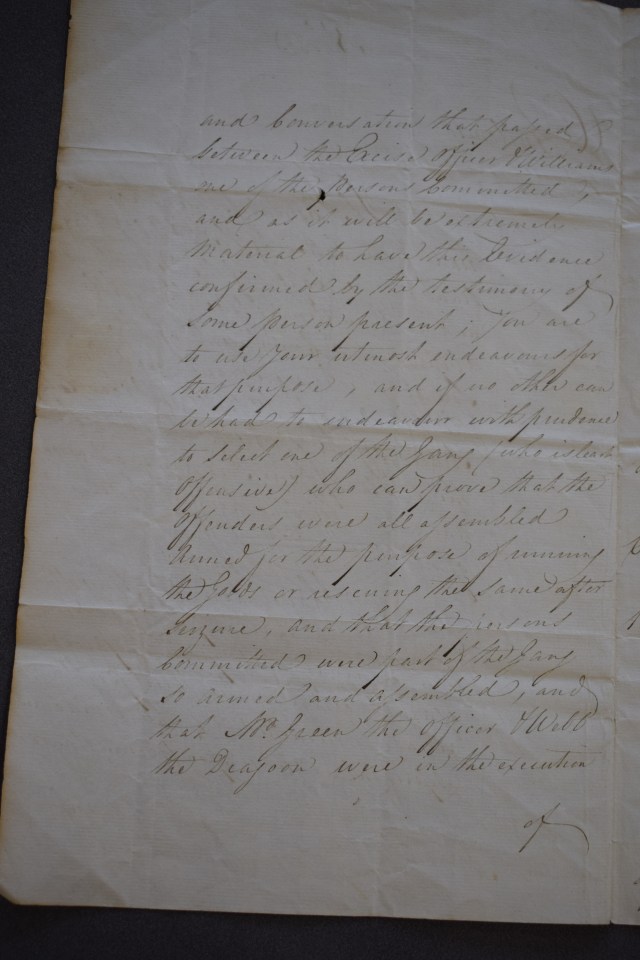 and Conversation that passed
between the Excise Officer & Williams
one of the Persons Committed;
and as it will be extremely
Material to have this Evidence
confirmed by the testimony of
Some person present; You are
to use Your utmost endeavours for
that purpose, and if no other can
be had to endeavour with prudence
to select one of the Gang (who is least
Offensive) who can prove that the
Offenders were all assembled
Armed for the purpose of running
the Goods or rescuing the same after
Seizure, and that the persons
Committed were part of the Gang
so armed and assembled, and
that Mr. Green the Officer & Webb
the Dragoon were in the execution
of